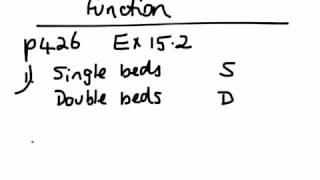 function
p426 Ex 15.2
1) Single beds S
Double beds D